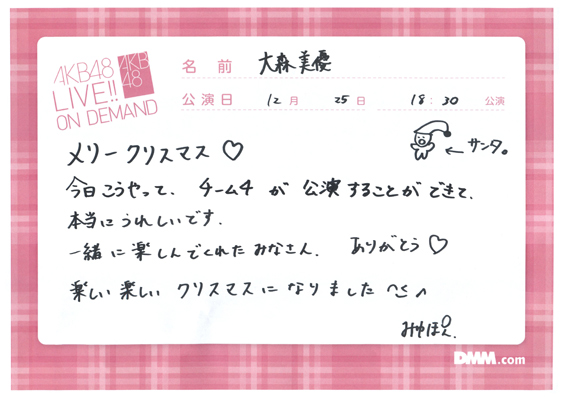 AKB48
LIVE!!
ON DEMAND
AKB
48
名前 大森美優
公演日 12月 25日 18:30 公演
メリークリスマス♡
←サンタ。
今日こうやって、チーム4が公演することができて、
本当にうれしいです.
一緒に楽しんでくれたみなさん. ありがとう♡
楽しい楽しいクリスマスになりました
DMM.com